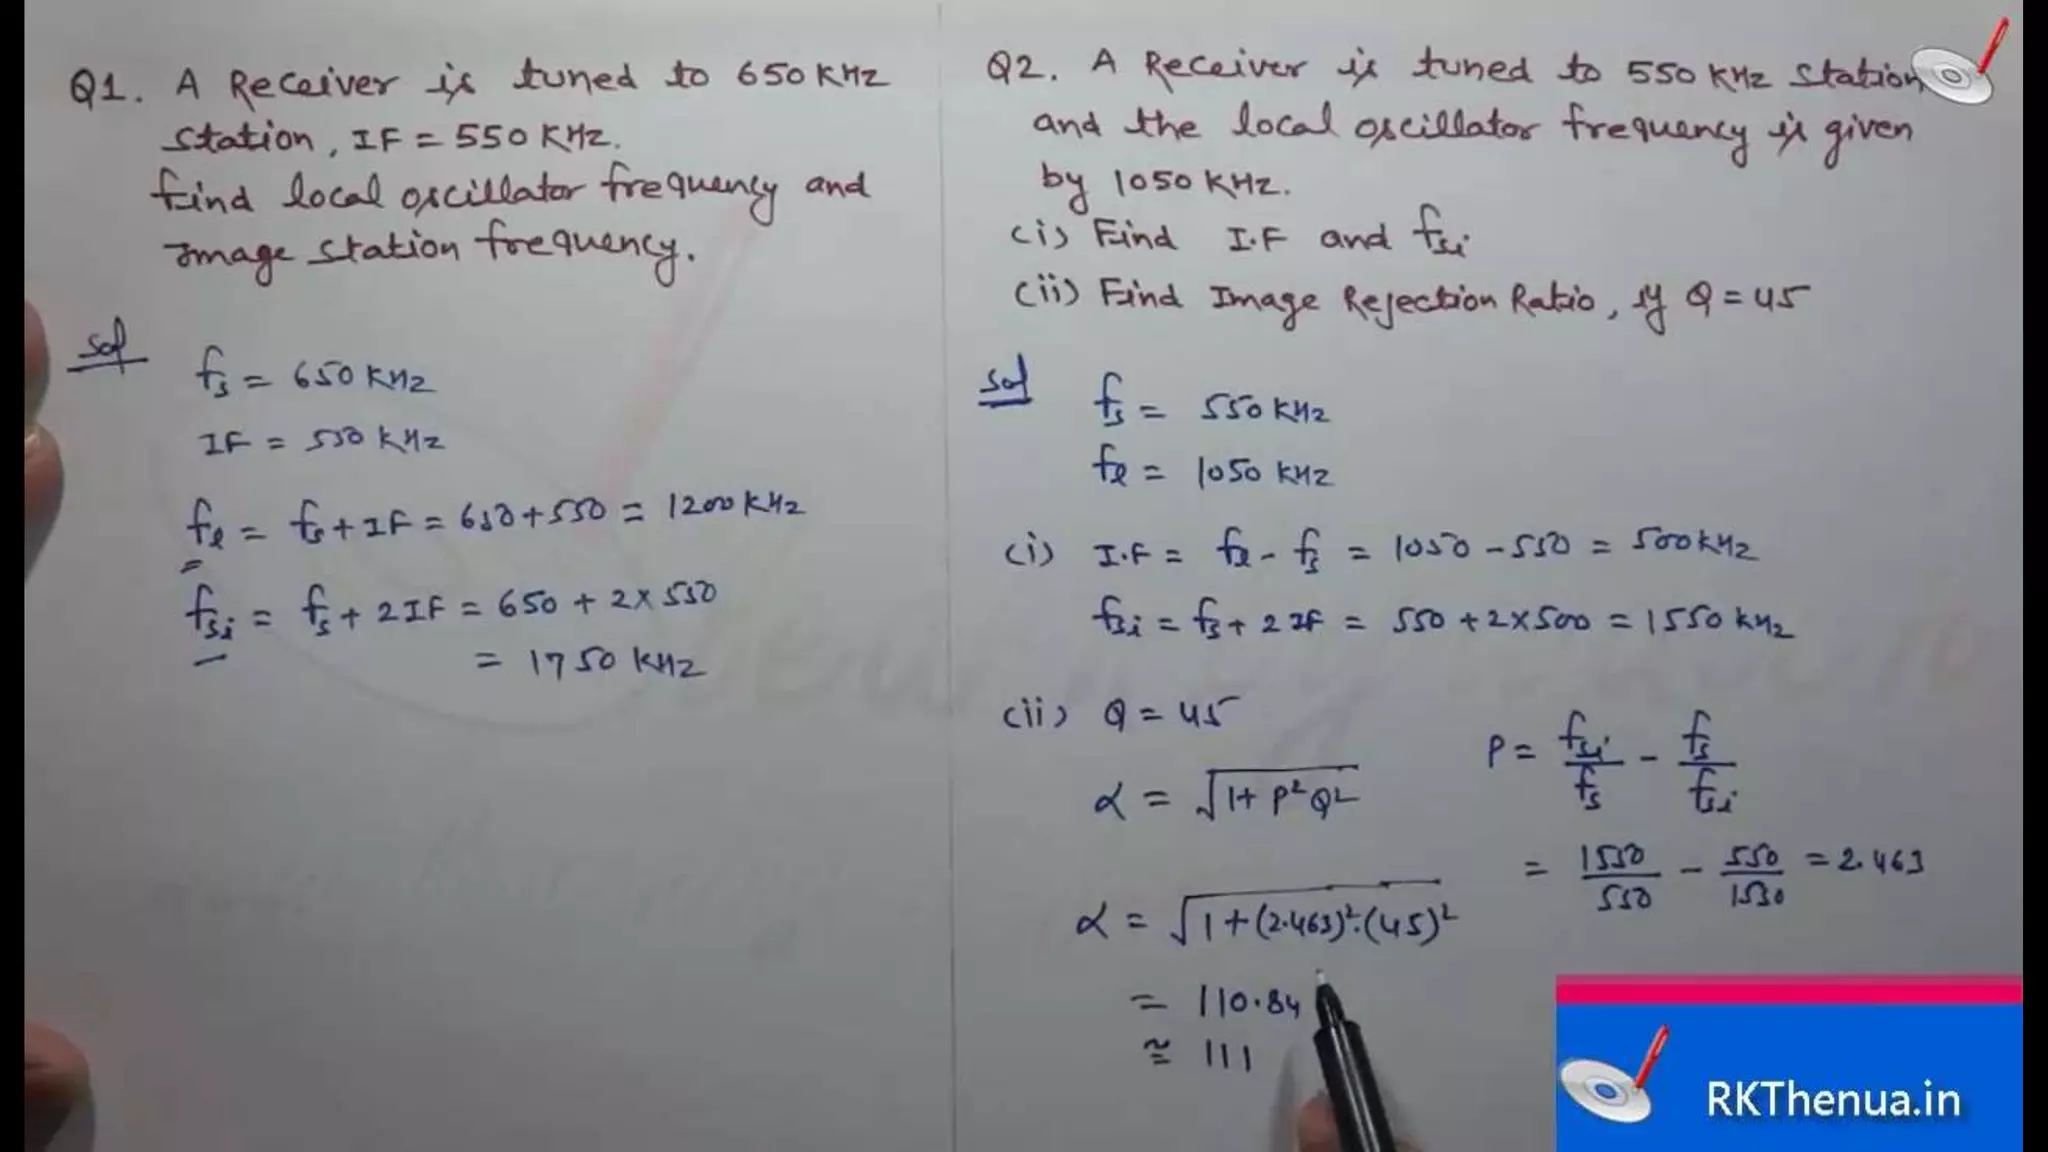 Q1. A Receiver is tuned to 650 KHz
station, IF = 550 KHz.
Find local oscillator frequency and
Image station frequency.
Sol
fs = 650 KHz
IF = 550 KHz
fl = fs + IF = 650 + 550 = 1200 KHz
fsi = fs + 2IF = 650 + 2 × 550
= 1750 KHz
Q2. A Receiver is tuned to 550 KHz station
and the local oscillator frequency is given
by 1050 KHz.
(i) Find I.F and fsi
(ii) Find Image Rejection Ratio, if Q = 45
Sol
fs = 550 KHz
fl = 1050 KHz
(i) I.F = fl - fs = 1050 - 550 = 500 KHz
fsi = fs + 2IF = 550 + 2×500 = 1550 KHz
(ii) Q = 45
α = √1 + P²Q²
P = fsi/fs - fs/fsi
= 1550/550 - 550/1550 = 2.463
α = √1 + (2.463)².(45)²
= 110.84
≅ 111
RKThenua.in